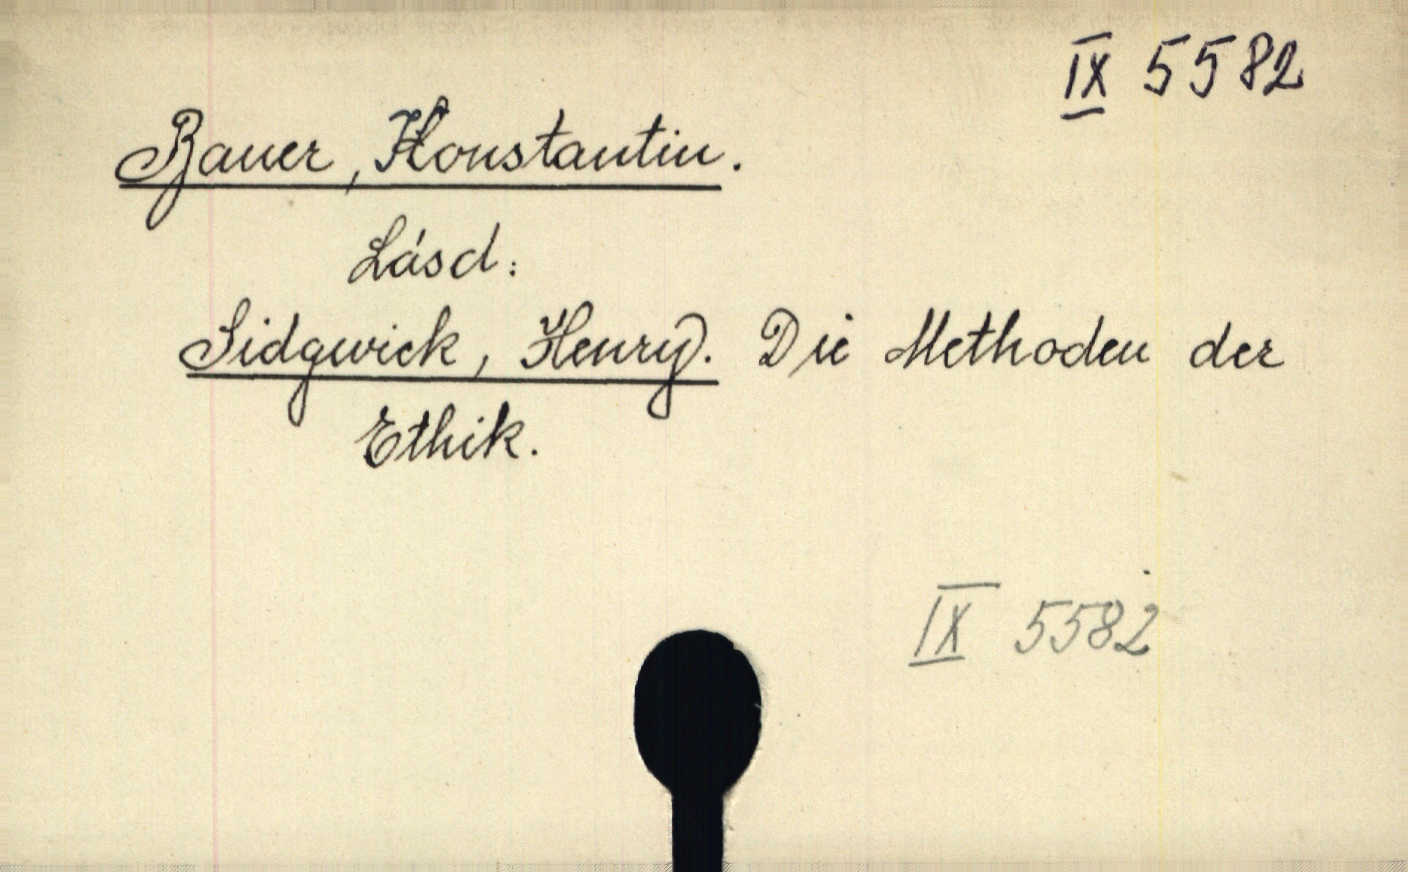 IX 5582
Bauer, Konstantin.
Lásd:
Sidgwick, Henry. Die Methoden der
Ethik.
IX 5582